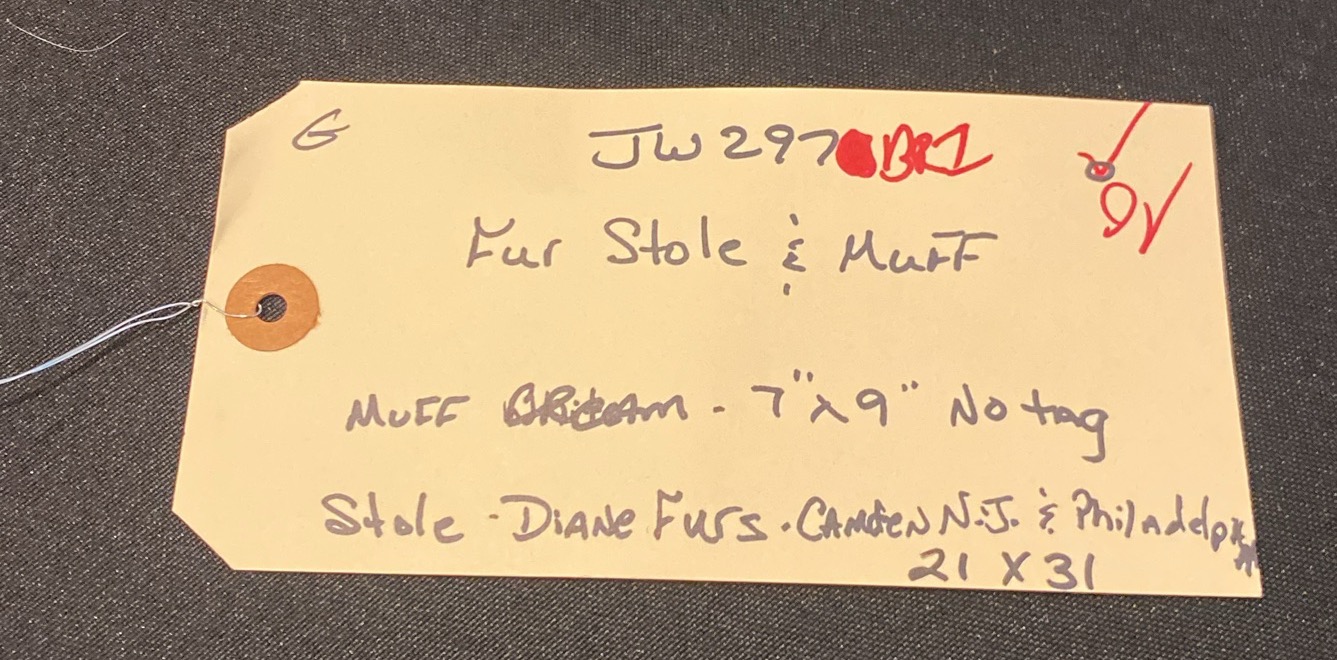 G
JW297 BR1
Fur Stole & Muff
Muff - 7" x 9" No tag
Stole - Diane Furs. Camden N.J. & Philadelphia
21 X 31